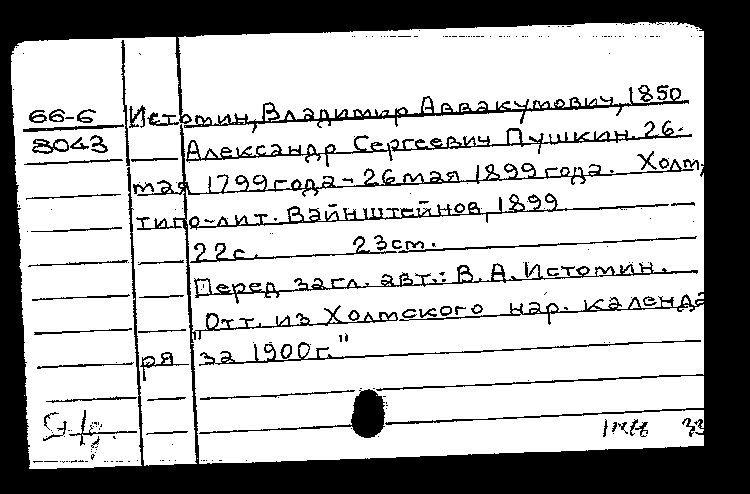 66-6 Истомин, Владимир Аввакумович, 1850
8043 Александр Сергеевич Пушкин. 26-
мая 1799 года - 26 мая 1899 года. Холм,
типо-лит. Вайнштейнов, 1899
22с. 23cm.
Перед загл. авт.: В. А. Истомин.
"Отт. из Холмского нар. календа
ря за 1900г."